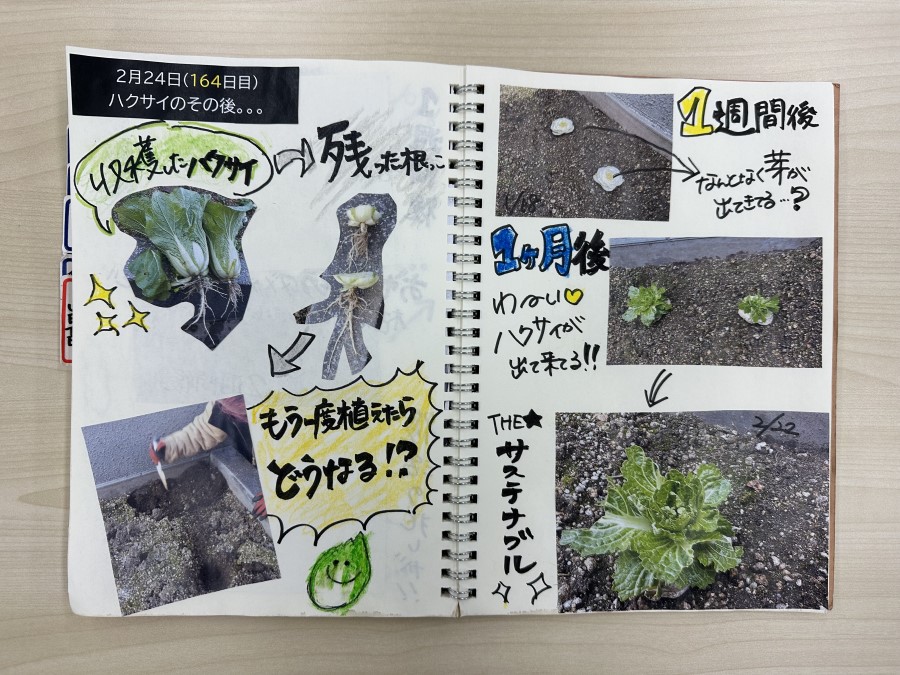 2月24日(164日目)
ハクサイのその後。。。
収穫したハクサイ
残った根っこ
もう一度植えたら
どうなる!?
1週間後
なんとなく芽が
出てきてる…?
1ヶ月後
わーい♡
ハクサイが
出て来てる!!
THE★
サステナブル
2/22